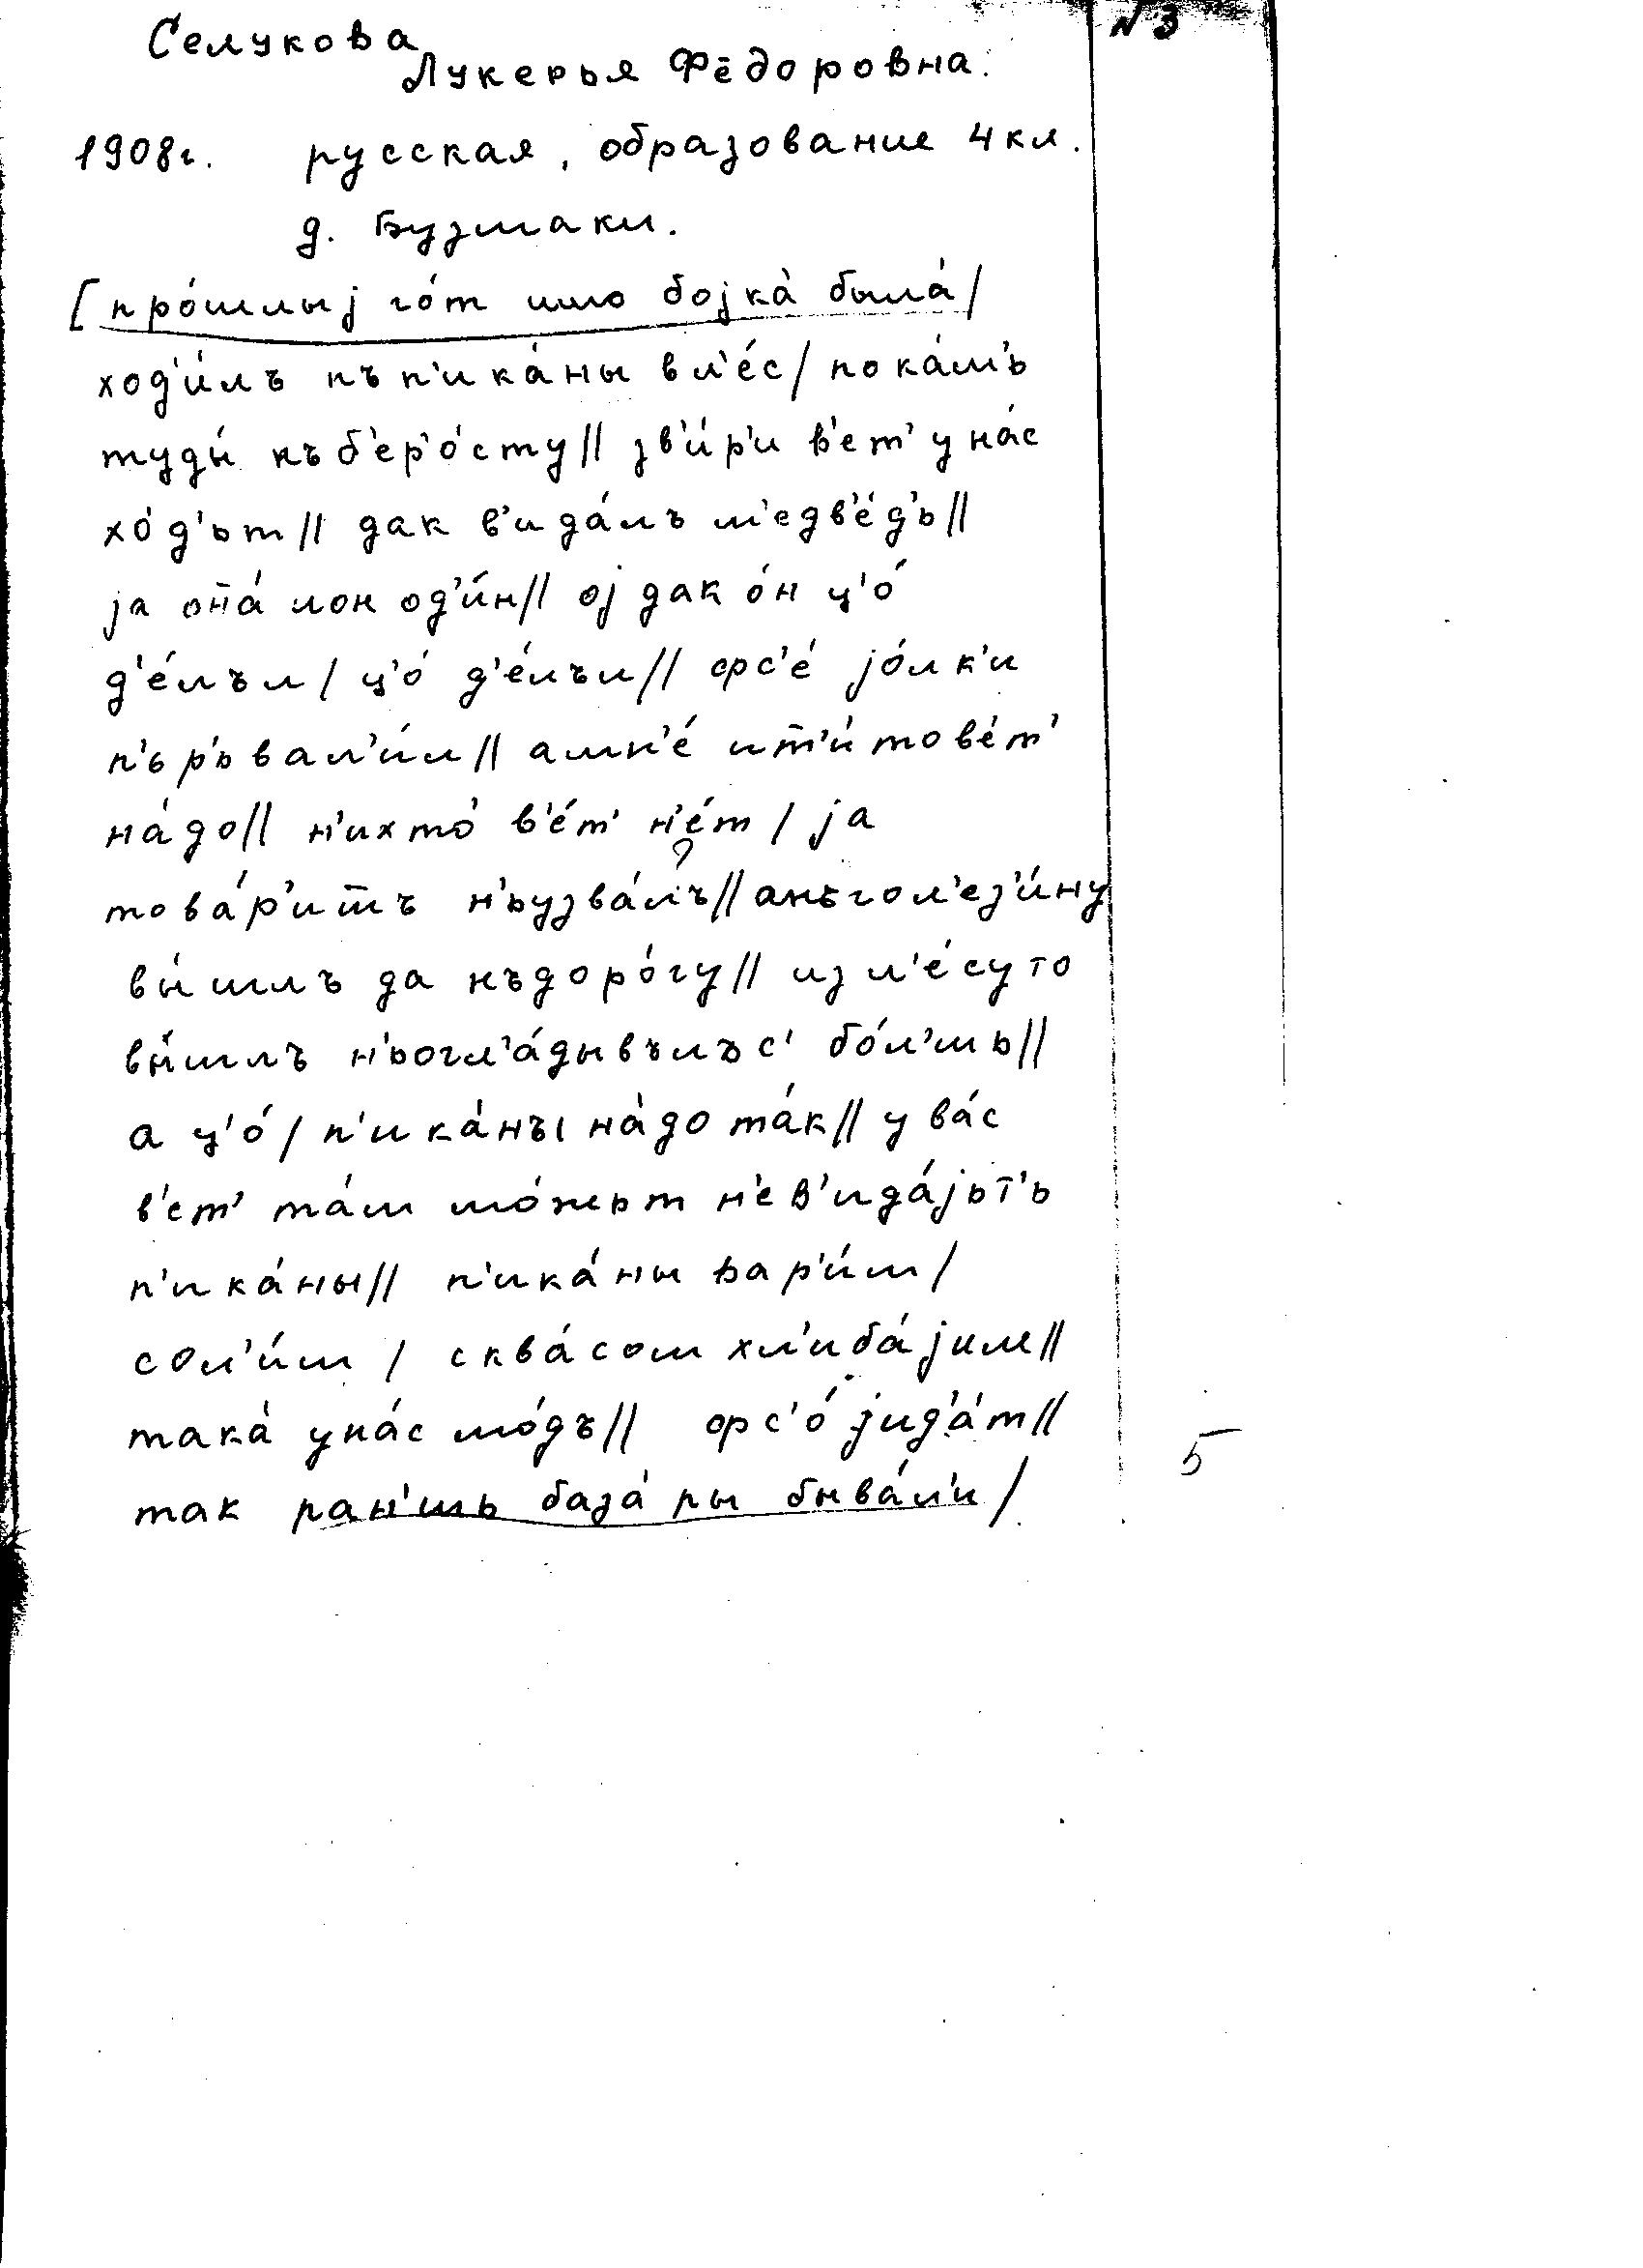 № 3
Селукова
Лукерья Фёдоровна.
1908г. русская, образование 4 кл.
д. Бузмаки.
[про́шлыј го́т ишо бојка́ была́/
ход'и́лъ пъп'ика́ны вл'е́с/ пока́м'ь
туды́ къб'ер'о́сту// зв'и́р'и в'ет' у на́с
хо́д'ът// дак в'ида́лъ м'едв'е́д'ь//
ја она́ мон од'и́н// ој дак о́н ц'о́
д'е́лъл/ ц'о́ д'е́лъл// фс'е́ јо́лк'и
п'ър'ьвал'и́л// амн'е́ ит̄'и́ тове́т'
на́до// н'ихто́ в'е́т' н'е́т/ ја
това́р'ит̄ъ н'ьузва́лъ// анъгол'ез'и́ну
вы́шлъ да нъдоро́гу// из л'е́суто
вы́шлъ н'ьогл'а́дывълъс' бо́л'шь//
а ц'о́/ п'ика́ны на́до та́к// у ва́с
в'ет' та́м мо́жът н'ев'ида́јьт'ь
п'ика́ны// п'ика́ны вар'и́м/
сол'и́м/ сква́сом хл'иба́јим//
така́ уна́с мо́дъ// фс'о́ јид'а́т//
так ран'шь база́ры быва́л'и/
5